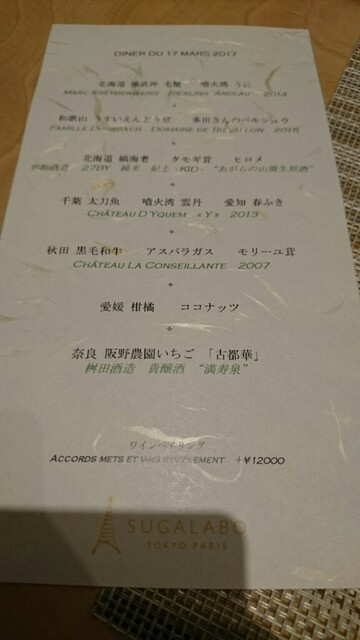 DINER DU 17 MARS 2017
北海道 毛蟹 噴火湾 うに
MARC KREYDENWEISS RIESLING ANDLAU 2014
和歌山 うすいえんどう豆 多田さんのパルシュウ
FAMILLE DUORBACH DOMAINE DE TRÉVALLON 2015
北海道 縞海老 タモギ茸 ヒロメ
平和酒造 27BY 純米 紀土 -KID- "あがらの山廃生原酒"
千葉 太刀魚 噴火湾 雲丹 愛知 春ふき
CHÂTEAU D'YQUEM «Y» 2013
秋田 黒毛和牛 アスパラガス モリーユ茸
CHÂTEAU LA CONSEILLANTE 2007
愛媛 柑橘 ココナッツ
奈良 阪野農園いちご 「古都華」
桝田酒造 貴醸酒 "満寿泉"
ワインペアリング
ACCORDS METS ET VINS SUPPLEMENT +¥12000
SUGALABO
TOKYO PARIS